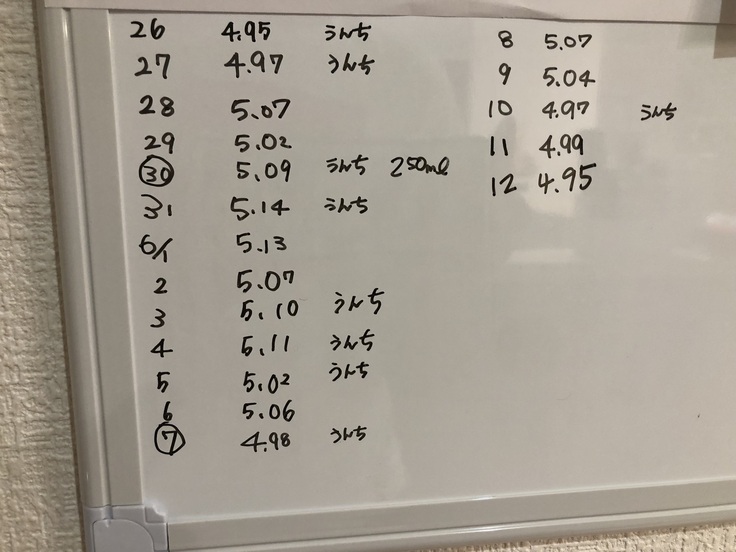 26 4.95 うんち
27 4.97 うんち
28 5.07
29 5.02
30 5.09 うんち 250ml
31 5.14 うんち
6/1 5.13
2 5.07
3 5.10 うんち
4 5.11 うんち
5 5.02 うんち
6 5.06
7 4.98 うんち
8 5.07
9 5.04
10 4.97 うんち
11 4.99
12 4.95